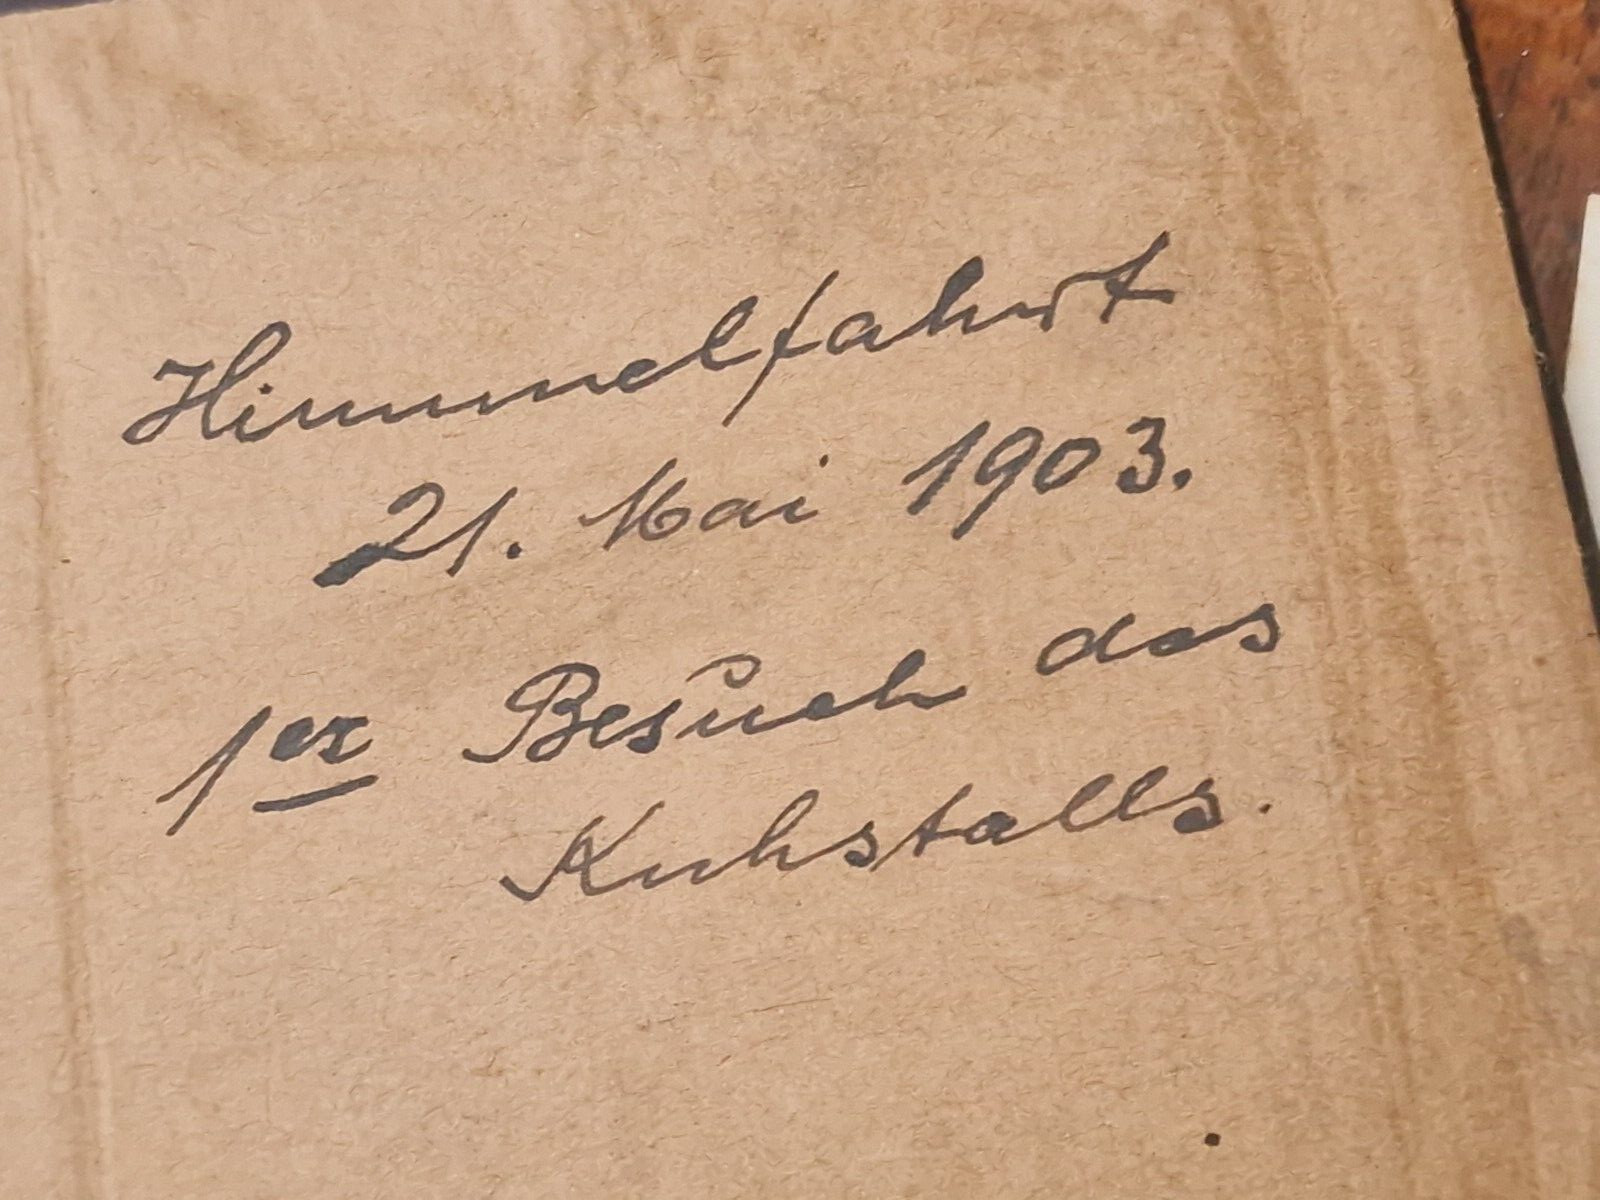 Himmelfahrt
21. Mai 1903.
1er Besuch des
Kuhstalls.